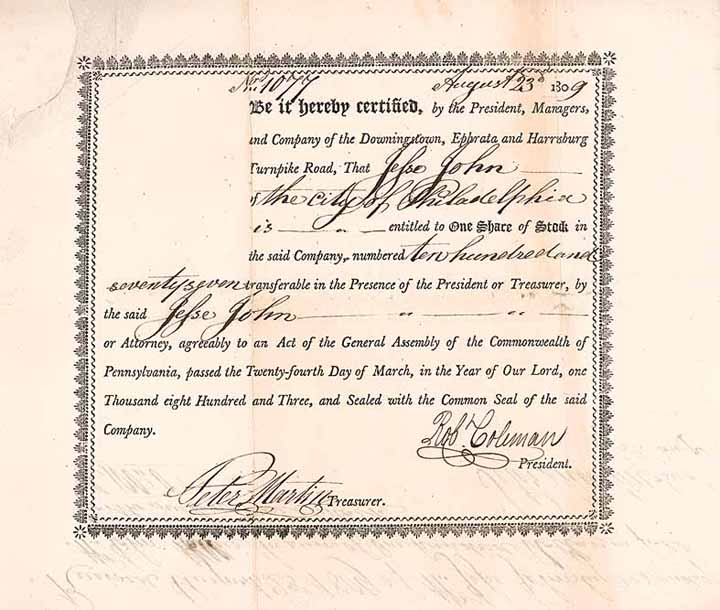 No. 1077 August 23d 1809
Be it hereby certified, by the President, Managers,
and Company of the Downingstown, Ephrata and Harrsburg
Turnpike Road, That Jesse John
of the city of Philadelphia
is " entitled to One Share of Stock in
the said Company, numbered ten hundred and
seventy seven transferable in the Presence of the President or Treasurer, by
the said Jesse John " "
or Attorney, agreeably to an Act of the General Assembly of the Commonwealth of
Pennsylvania, passed the Twenty-fourth Day of March, in the Year of Our Lord, one
Thousand eight Hundred and Three, and Sealed with the Common Seal of the said
Company.
Rob. Coleman
President.
Peter Martin Treasurer.